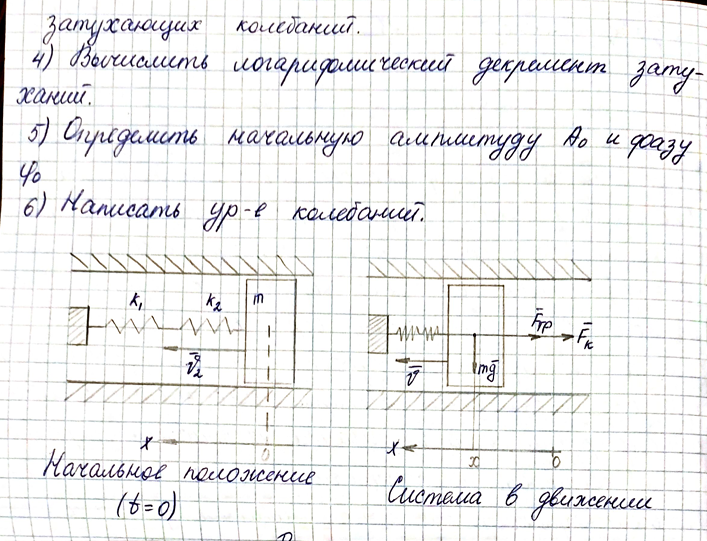 затухающих колебаний.
4) Вычислить логарифмический декремент зату-
ханий.
5) Определить начальную амплитуду A₀ и фазу
φ₀
6) Написать ур-е колебаний.
k₁ k₂ m
v̄₂
x 0
Начальное положение
(t=0)
F̄тр F̄к
v̄ mḡ
x x 0
Система в движении